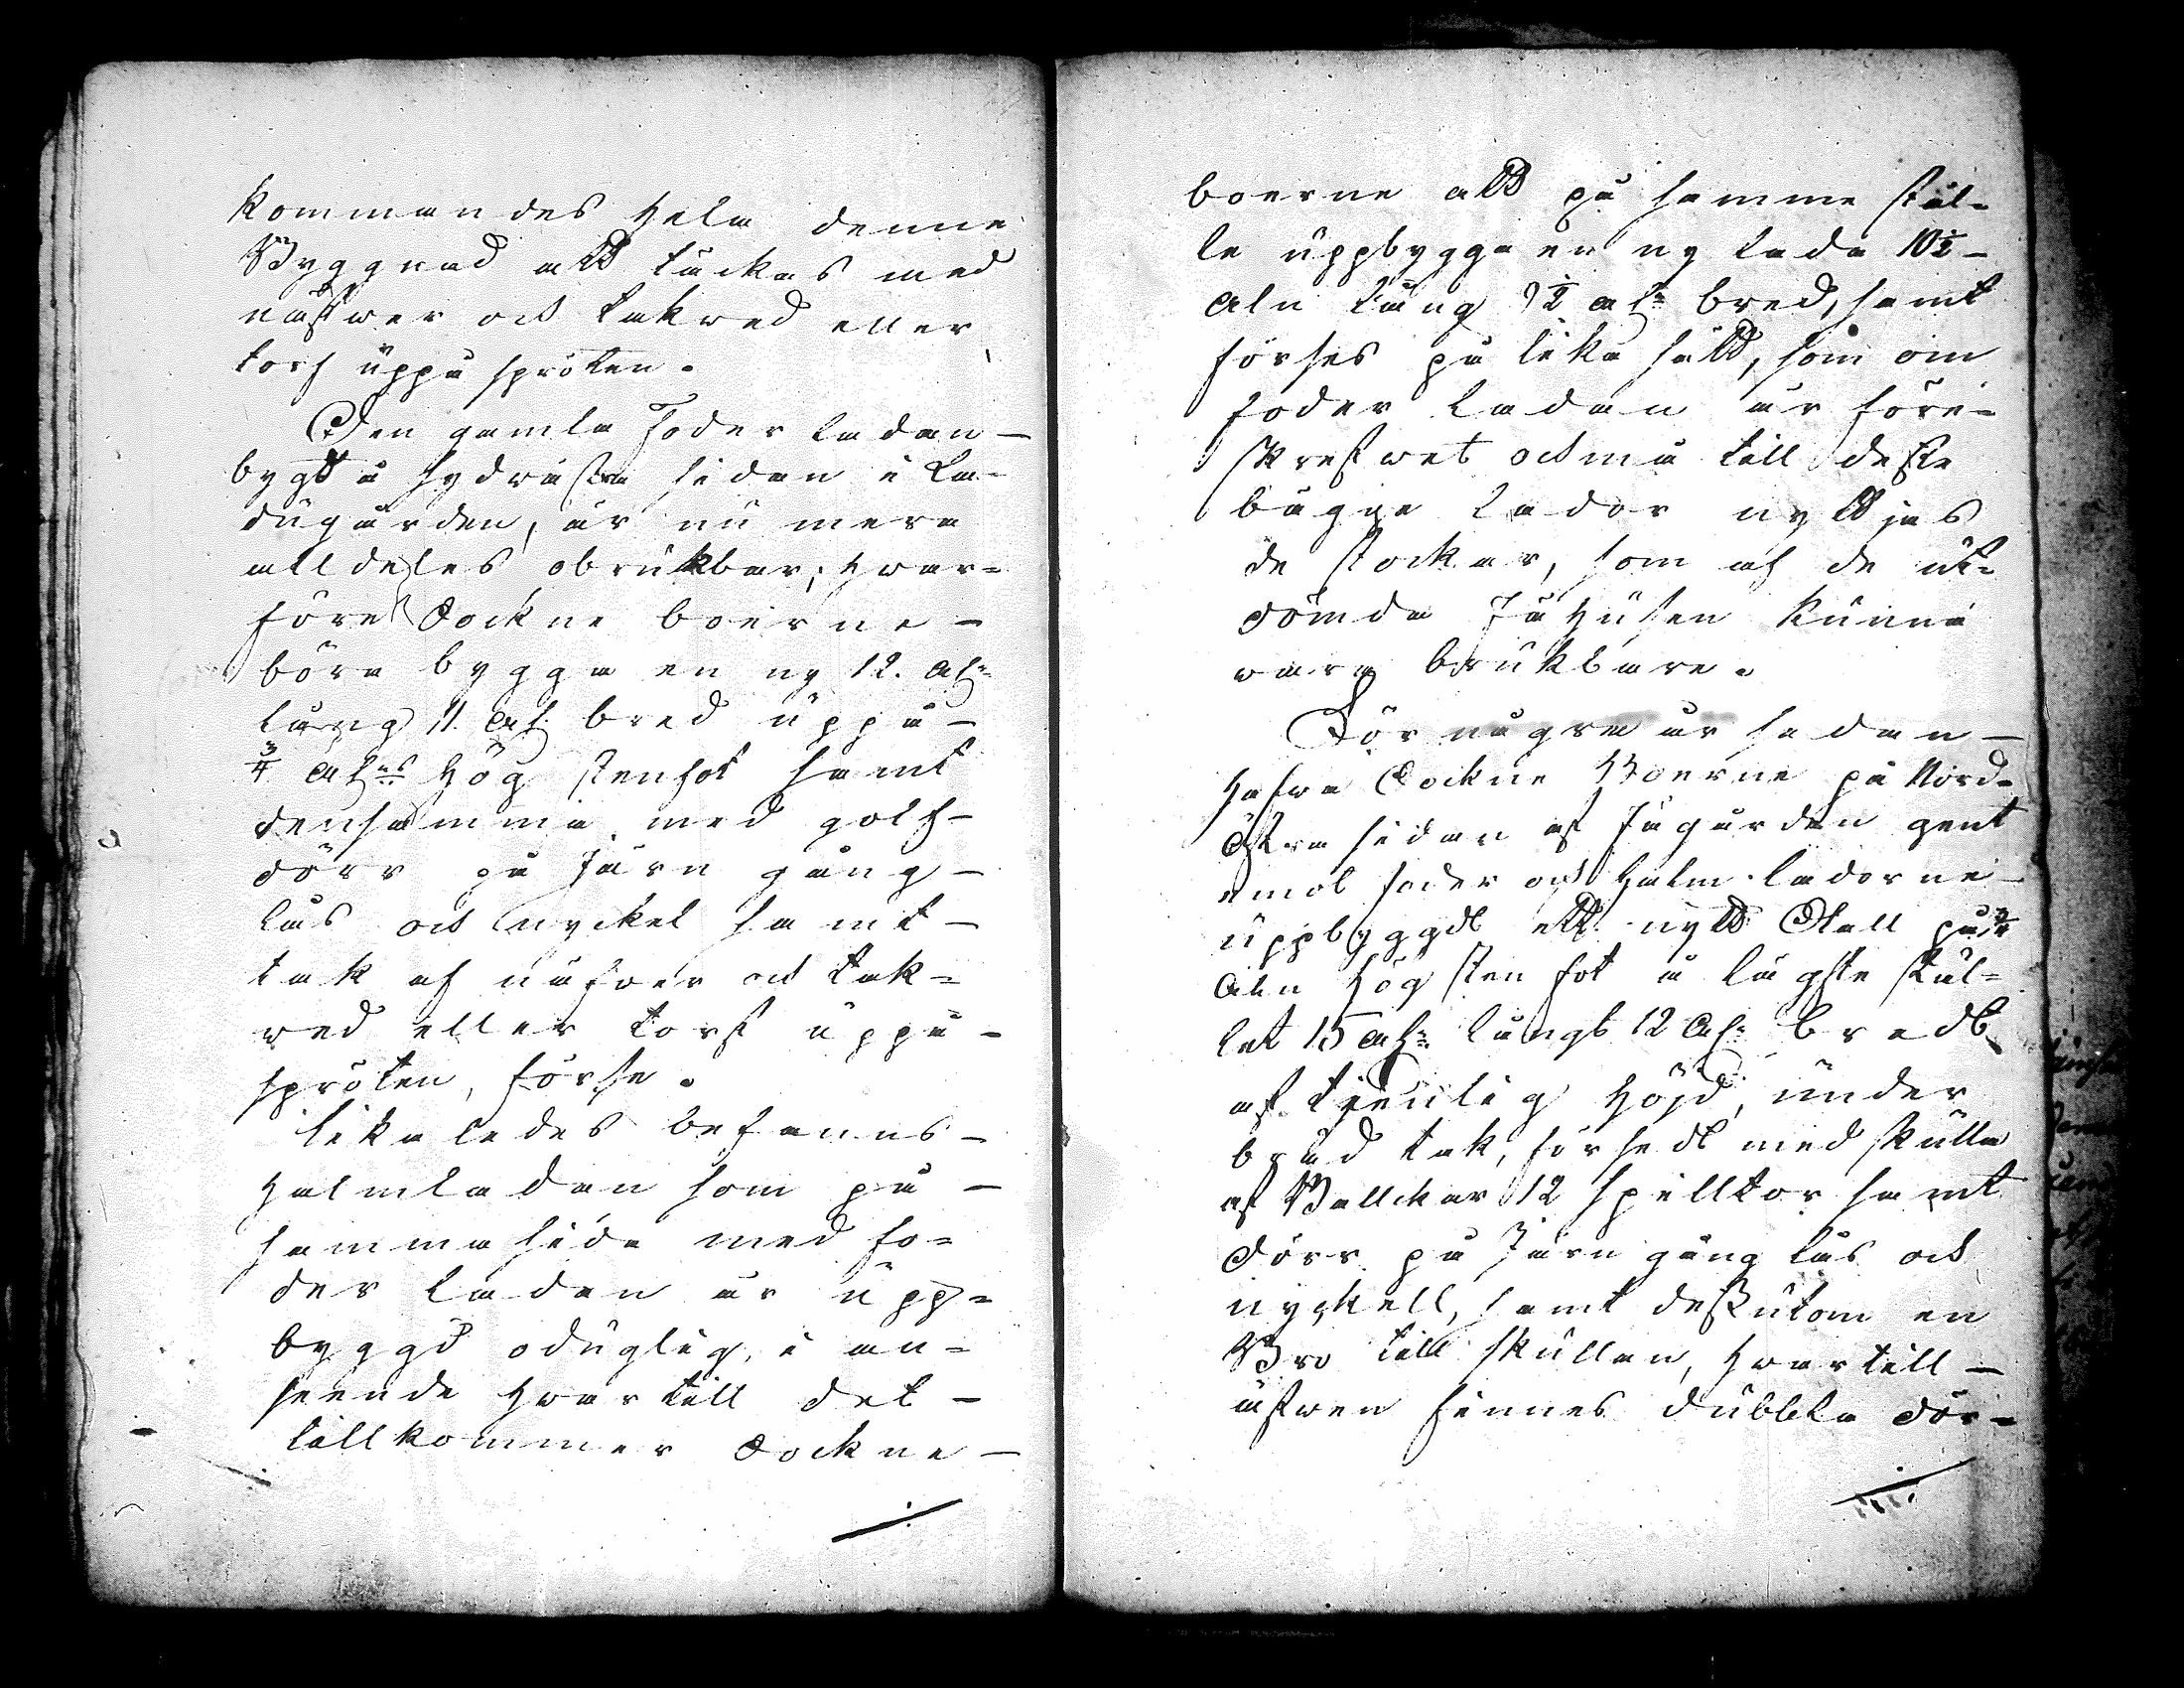 kommandes hela denne
Byggnad att täckas med
näfwer och takwed eller
torf uppå spröten.
Den gamla Foder ladan —
bygt å sydwästra sidan i La-
dugården, är nu mera
alldeles obrukbar; hwar-
före Sockne boerne —
böra bygga en ny 12. aln
lång 11 al: bred uppå —
3/4 alns hög stenfot samt
densamma med golf —
dörr på Järn gång —
lås och nyckel samt —
tak af näfwer och tak-
wed eller torf uppå —
spröten, förse.
likaledes befanns —
halmladan som på —
samma sida med fo-
der ladan är upp-
bygd oduglig, i an-
seende hwartill det —
tillkommer Sockne —
boerne att på samma stäl-
le uppbygga en ny lada 10½ —
aln lång 9½ aln bred, samt
förses på lika sätt, som om
foder ladan är före-
skrefwet och må till desse
bägge lador nyttjas
de stockar, som af de ut-
dömda Fähusen kunna
wara brukbare.
För några år sedan —
hafwa Sockne Boerne på Nord-
östra sidan af Fägården gent
emot foder och halm-ladorne
uppbyggdt ett nytt Stall på 3/4
Aln hög stenfot å lägste stäl-
let 15 aln långt 12 aln bredt
af tjenlig höjd, under
bräd tak, försedt med skulla
af Ballckar 12 spilltor samt
dörr på Järn gång lås och
nyckell, samt dessutom en
Bro till skullan, hwartill —
äfwen finnes dubbla dör-